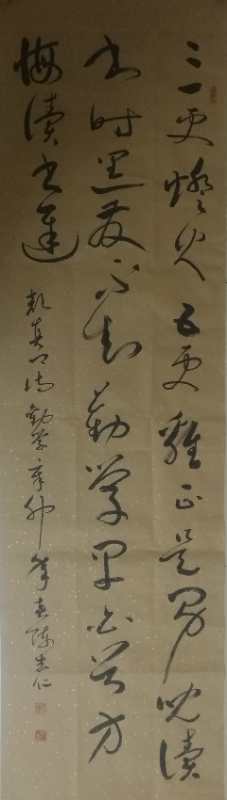 三更燈火五更雞正是男兒讀
书时黑发不知勤学早白首方
悔读书遲
颜真卿诗勸学辛卯春陈仁